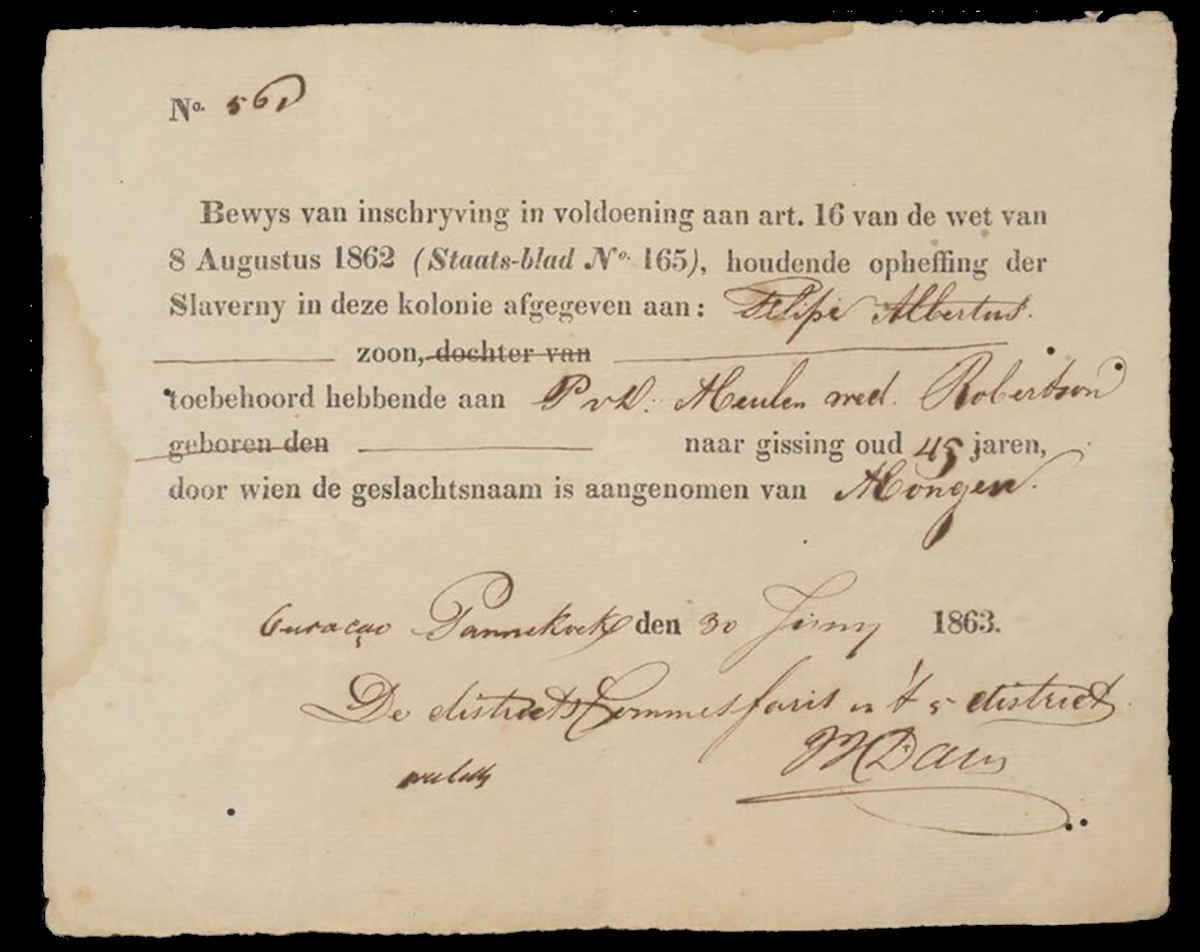 No. 560
Bewys van inschryving in voldoening aan art. 16 van de wet van
8 Augustus 1862 (Staats-blad No. 165), houdende opheffing der
Slaverny in deze kolonie afgegeven aan: Felipi Albertus.
zoon, dochter van
toebehoord hebbende aan P v d. Meulen wed. Robertson
geboren den naar gissing oud 45 jaren,
door wien de geslachtsnaam is aangenomen van Mongen.
Curaçao Pannekoek den 30 Juny 1863.
De districts Commissaris in 't 5 district